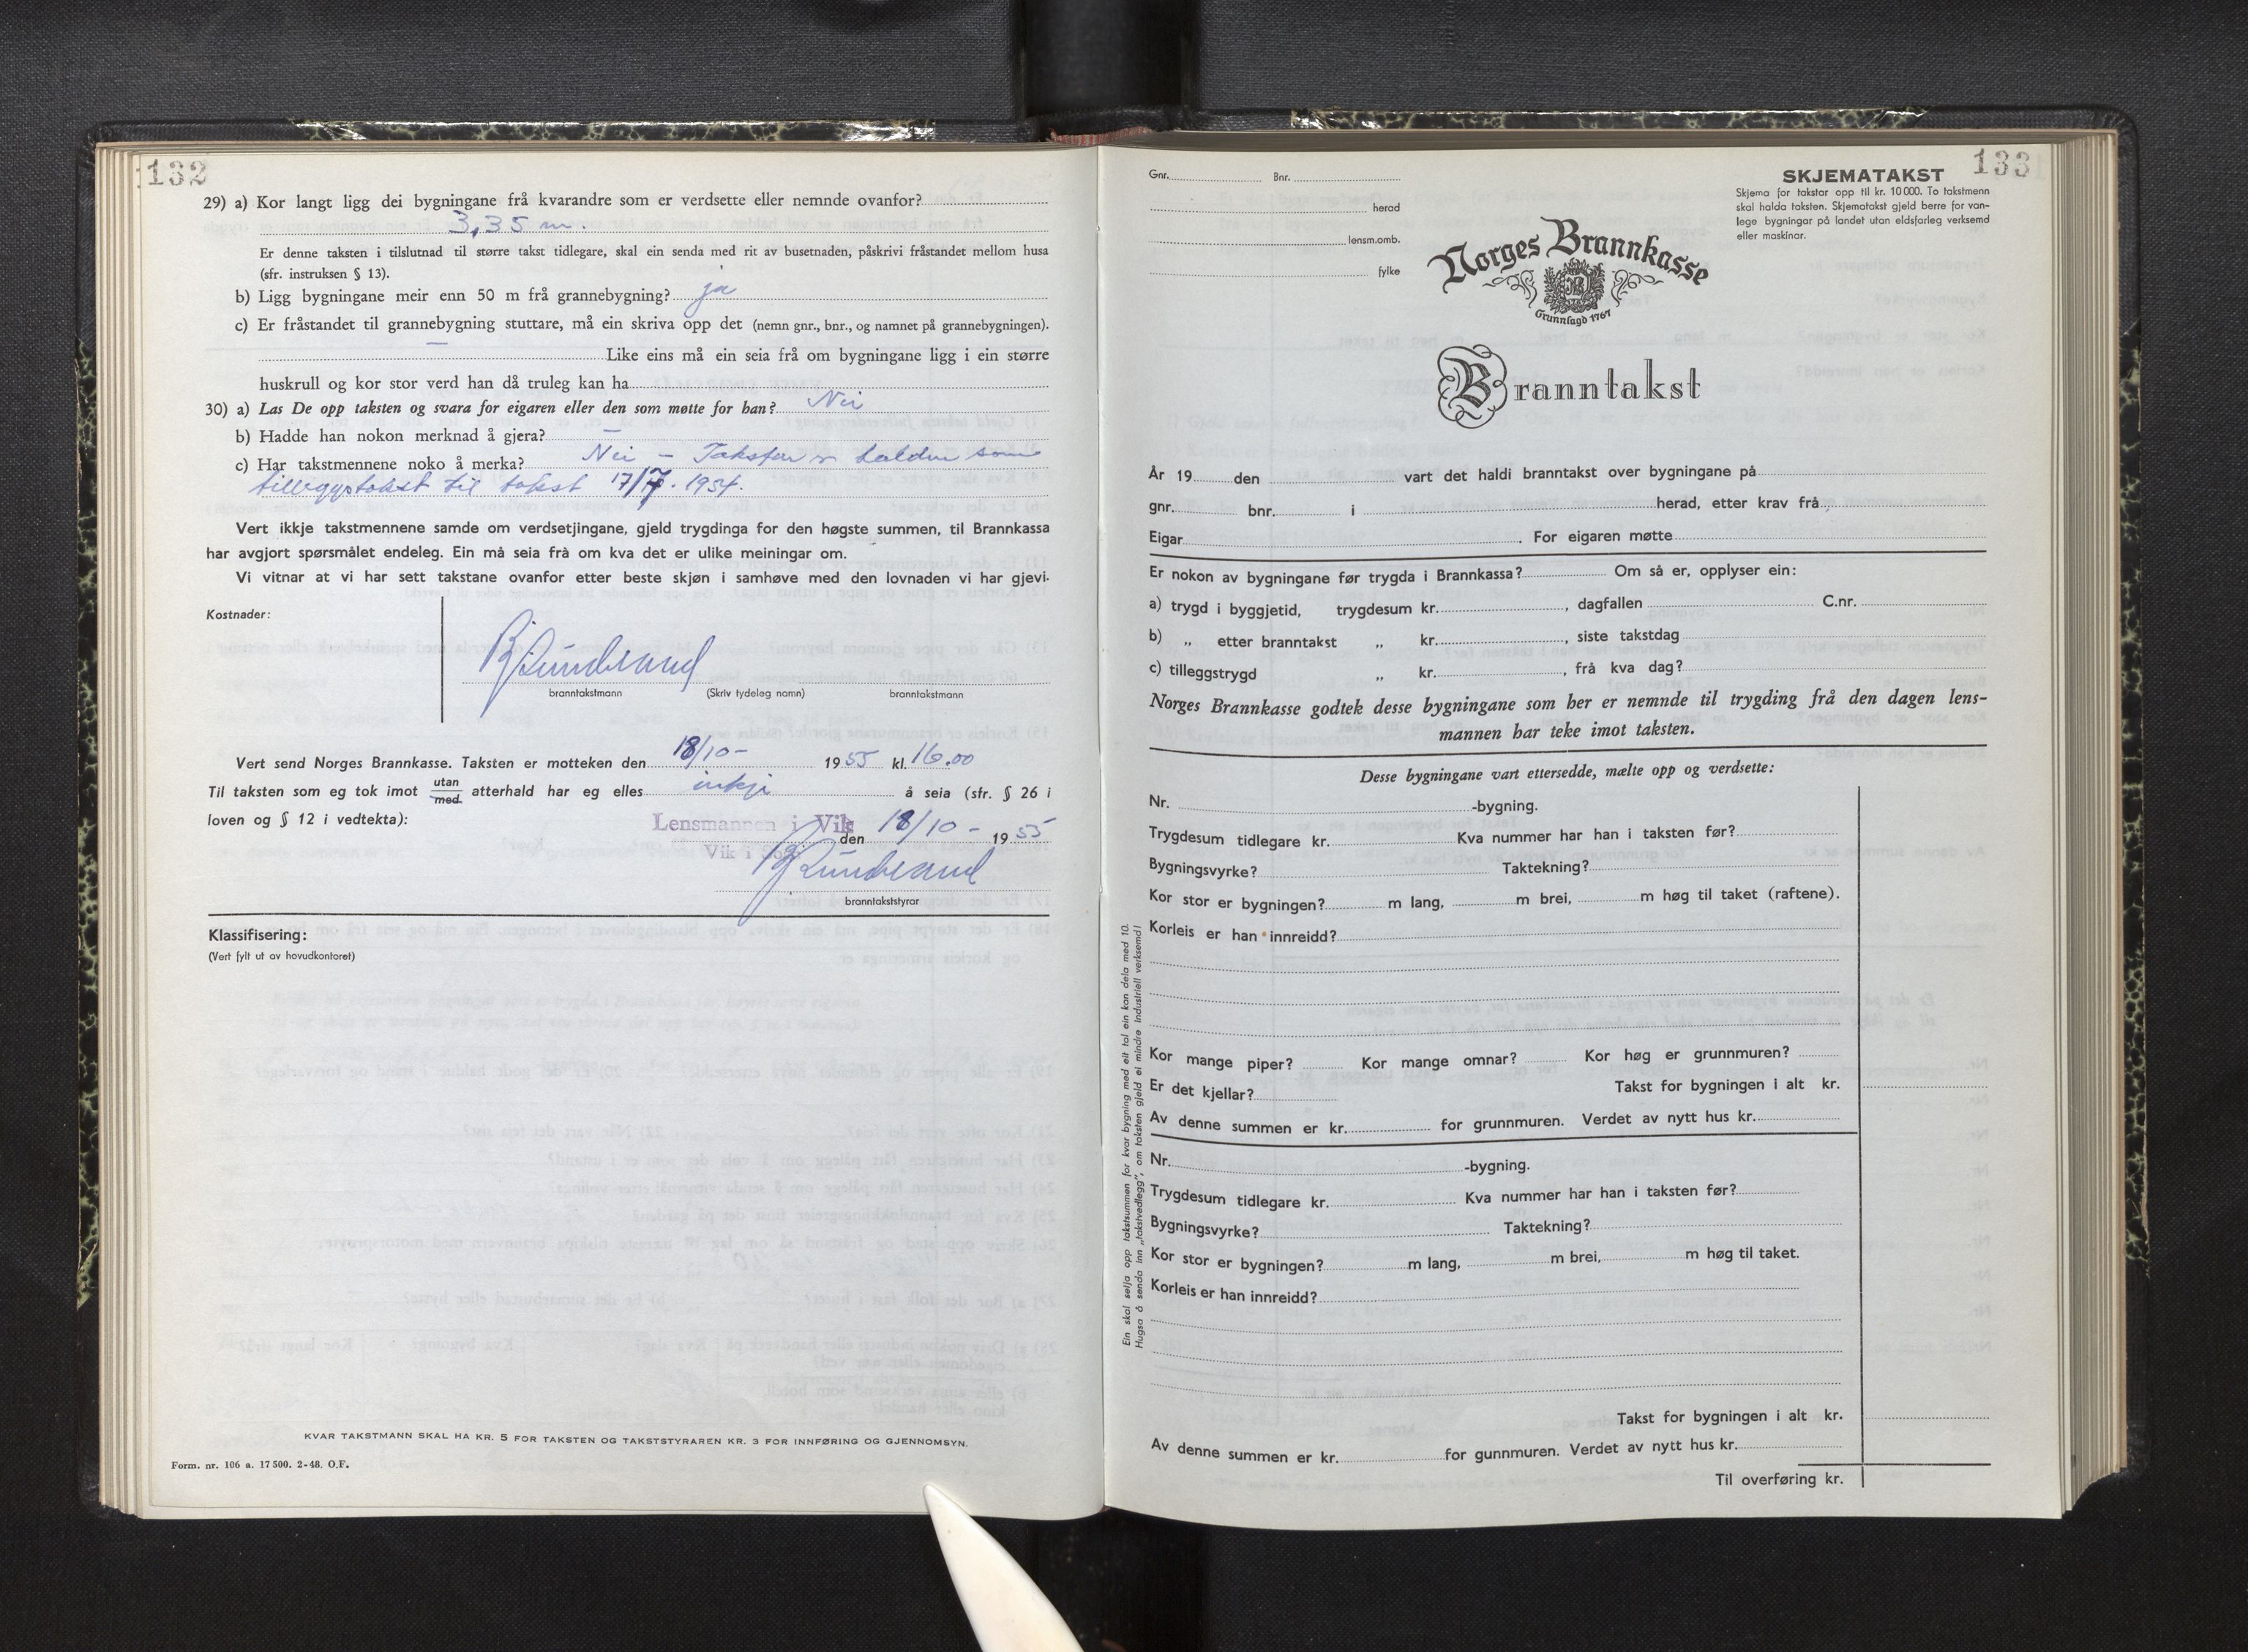 132
29) a) Kor langt ligg dei bygningane frå kvarandre som er verdsette eller nemnde ovanfor?
3,35 m.
Er denne taksten i tilslutnad til større takst tidlegare, skal ein senda med rit av busetnaden, påskrivi fråstandet mellom husa
(sfr. instruksen § 13).
b) Ligg bygningane meir enn 50 m frå grannebygning? ja
c) Er fråstandet til grannebygning stuttare, må ein skriva opp det (nemn gnr., bnr., og namnet på grannebygningen).
— Like eins må ein seia frå om bygningane ligg i ein større
huskrull og kor stor verd han då truleg kan ha
30) a) Las De opp taksten og svara for eigaren eller den som møtte for han? Nei
b) Hadde han nokon merknad å gjera? —
c) Har takstmennene noko å merka? Nei – Taksten er halden som
tilleggstakst til takst 17/7. 1954.
Vert ikkje takstmennene samde om verdsetjingane, gjeld trygdinga for den høgste summen, til Brannkassa
har avgjort spørsmålet endeleg. Ein må seia frå om kva det er ulike meiningar om.
Vi vitnar at vi har sett takstane ovanfor etter beste skjøn i samhøve med den lovnaden vi har gjevi.
Kostnader:
branntakstmann (Skriv tydeleg namn) branntakstmann
Vert send Norges Brannkasse. Taksten er motteken den 18/10- 1955 kl. 16.00
Til taksten som eg tok imot utan/med atterhald har eg elles inkje å seia (sfr. § 26 i
loven og § 12 i vedtekta):
Lensmannen i Vik den 18/10 - 1955
Vik i
branntakststyrar
Klassifisering:
(Vert fylt ut av hovudkontoret)
KVAR TAKSTMANN SKAL HA KR. 5 FOR TAKSTEN OG TAKSTSTYRAREN KR. 3 FOR INNFØRING OG GJENNOMSYN.
Form. nr. 106 a. 17 500. 2-48. O.F.
133
Gnr. Bnr.
herad
lensm.omb.
fylke
SKJEMATAKST
Skjema for takstar opp til kr. 10 000. To takstmenn
skal halda taksten. Skjematakst gjeld berre for van-
lege bygningar på landet utan eldsfarleg verksemd
eller maskinar.
Norges Brannkasse
Grunnlagd 1767
Branntakst
År 19 den vart det haldi branntakst over bygningane på
gnr. bnr. i herad, etter krav frå
Eigar . For eigaren møtte
Er nokon av bygningane før trygda i Brannkassa? Om så er, opplyser ein:
a) trygd i byggjetid, trygdesum kr. , dagfallen C.nr.
b) „ etter branntakst „ kr. , siste takstdag
c) tilleggstrygd „ kr. , frå kva dag?
Norges Brannkasse godtek desse bygningane som her er nemnde til trygding frå den dagen lens-
mannen har teke imot taksten.
Desse bygningane vart ettersedde, mælte opp og verdsette:
Nr. -bygning.
Trygdesum tidlegare kr. Kva nummer har han i taksten før?
Bygningsvyrke? Taktekning?
Kor stor er bygningen? m lang, m brei, m høg til taket (raftene).
Korleis er han innreidd?
Kor mange piper? Kor mange omnar? Kor høg er grunnmuren?
Er det kjellar? Takst for bygningen i alt kr.
Av denne summen er kr. for grunnmuren. Verdet av nytt hus kr.
Nr. -bygning.
Trygdesum tidlegare kr. Kva nummer har han i taksten før?
Bygningsvyrke? Taktekning?
Kor stor er bygningen? m lang, m brei, m høg til taket.
Korleis er han innreidd?
Takst for bygningen i alt kr.
Av denne summen er kr. for gunnmuren. Verdet av nytt hus kr.
Til overføring kr.
Ein skal setja opp takstsummen for kvar bygning med eit tal ein kan dela med 10.
Hugsa å senda inn „takstvedlegg", om taksten gjeld ei mindre industriell verksemd!